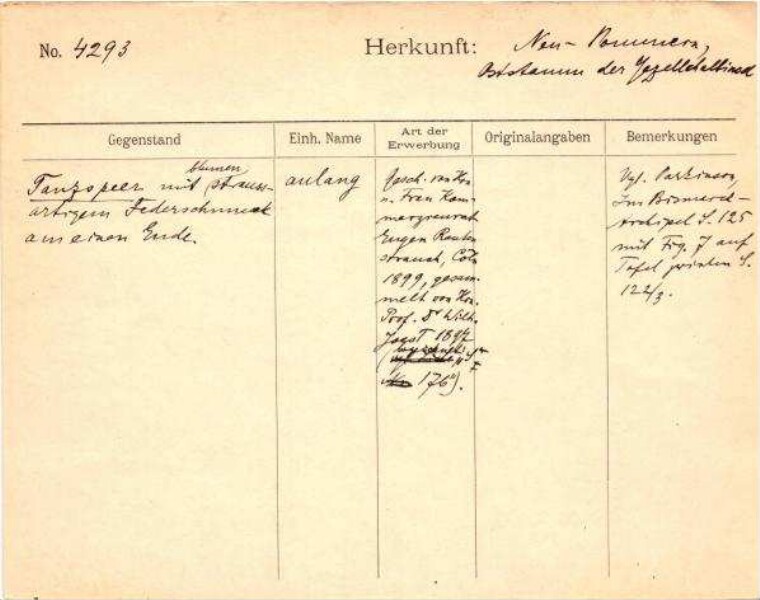 No. 4293
Herkunft: Neu-Pommern,
Oststamm der Gazellehalbinsel
Gegenstand
Einh. Name
Art der
Erwerbung
Originalangaben
Bemerkungen
blumen
Tanzspeer mit strauss-
artigem Federschmuck
am einen Ende.
aulang
Gesch. von Hrn
u. Frau Kom-
merzienrath
Eugen Rauten
strauch, Cöln
1899, gesam-
melt von Hrn.
Prof. Dr Wilh.
Joest 1897
176).
Vgl. Parkinson,
Im Bismarck-
Archipel S. 125
mit Fig. 7 auf
Tafel zwischen S.
122/3.